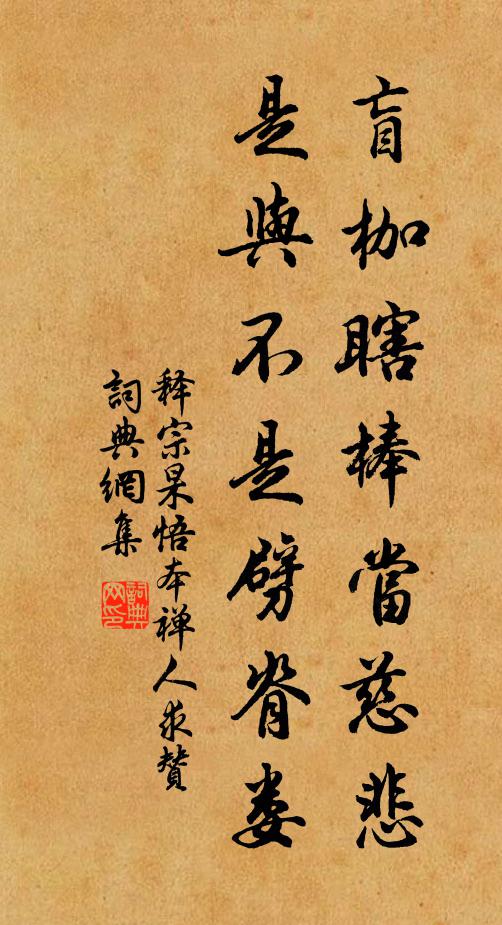 盲枷瞎棒當慈悲
是與不是劈脊婁
释宗杲悟本禅人求贊
詞典網集
詞典网印